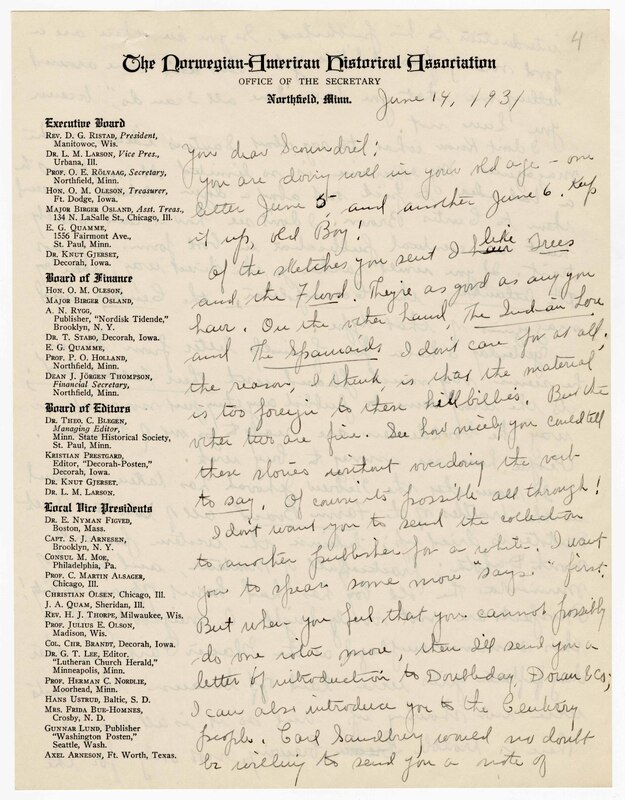 4
The Norwegian-American Historical Association
OFFICE OF THE SECRETARY
Northfield, Minn.
June 14, 1931
Executive Board
REV. D. G. RISTAD, President,
Manitowoc, Wis.
DR. L. M. LARSON, Vice Pres.,
Urbana, Ill.
PROF. O. E. RÖLVAAG, Secretary,
Northfield, Minn.
HON. O. M. OLESON, Treasurer,
Ft. Dodge, Iowa.
MAJOR BIRGER OSLAND, Asst. Treas.,
134 N. LaSalle St., Chicago, Ill.
E. G. QUAMME,
1556 Fairmont Ave.,
St. Paul, Minn.
DR. KNUT GJERSET,
Decorah, Iowa.
Board of Finance
HON. O. M. OLESON,
MAJOR BIRGER OSLAND,
A. N. RYGG,
Publisher, "Nordisk Tidende,"
Brooklyn, N. Y.
DR. T. STABO, Decorah, Iowa.
E. G. QUAMME,
PROF. P. O. HOLLAND,
Northfield, Minn.
DEAN J. JÖRGEN THOMPSON,
Financial Secretary,
Northfield, Minn.
Board of Editors
DR. THEO. C. BLEGEN,
Managing Editor,
Minn. State Historical Society,
St. Paul, Minn.
KRISTIAN PRESTGARD,
Editor, "Decorah-Posten,"
Decorah, Iowa.
DR. KNUT GJERSET.
DR. L. M. LARSON.
Local Vice Presidents
DR. E. NYMAN FIGVED,
Boston, Mass.
CAPT. S. J. ARNESEN,
Brooklyn, N. Y.
CONSUL M. MOE,
Philadelphia, Pa.
PROF. C. MARTIN ALSAGER,
Chicago, Ill.
CHRISTIAN OLSEN, Chicago, Ill.
J. A. QUAM, Sheridan, Ill.
REV. H. J. THORPE, Milwaukee, Wis.
PROF. JULIUS E. OLSON,
Madison, Wis.
COL. CHR. BRANDT, Decorah, Iowa.
DR. G. T. LEE, Editor,
"Lutheran Church Herald,"
Minneapolis, Minn.
PROF. HERMAN C. NORDLIE,
Moorhead, Minn.
HANS USTRUD, Baltic, S. D.
MRS. FRIDA BUE-HOMNES,
Crosby, N. D.
GUNNAR LUND, Publisher
"Washington Posten,"
Seattle, Wash.
AXEL ARNESON, Ft. Worth, Texas.
You dear Scoundril!
You are doing well in your old age — one
letter June 5, and another June 6. Keep
it up, old Boy!
Of the sketches you sent I like Trees
and the Flood. They're as good as any you
have. On the other hand, The Indian Love
and The Spaniards I don't care for at all.
the reason, I think, is that the material
is too foreign to these hillbillies. But the
other two are fine. See how nicely you could tell
these stories without overdoing the verb
to say. Of course its possible all through!
I don't want you to send the collection
to another publisher for a while. I want
you to spear some more "says" first.
But when you feel that you cannot possibly
do one iota more, then I'll send you a
letter of introduction to Doubleday, Doran & Co;
I can also introduce you to the Century
people. Carl Sandburg would no doubt
be willing to send you a note of